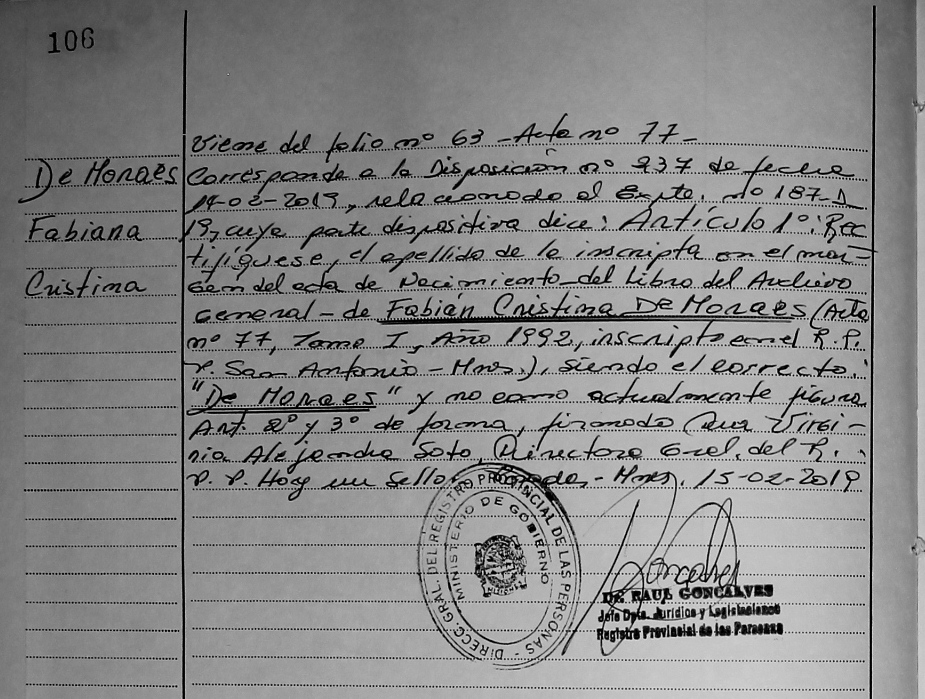 106
Viene del folio nº 63 - Acta nº 77 -
De Moraes
Fabiana
Cristina
Corresponde a la Disposición nº 237 de fecha
14-02-2019, relacionado al Expte. nº 187-D-
19, cuya parte dispositiva dice: Artículo 1º: Rec-
tifíquese, el apellido de la inscripta en el mar-
gen del acta de Nacimiento - del Libro del Archivo
General - de Fabián Cristina De Moraes (Acta
nº 77, Tomo I, Año 1992, inscripta en el R.P.
P. San Antonio - Mnes.), siendo el correcto:
"De Moraes" y no como actualmente figura.
Art. 2º y 3º de forma, firmado Virgi-
nia Alejandra Soto, Directora Gral. del R.
P. P. Hay un Sello. Posadas - Mnes. 15-02-2019
DIRECC. GRAL. DEL REGISTRO PROVINCIAL DE LAS PERSONAS -
MINISTERIO DE GOBIERNO
MISIONES
Goncalves
DR. RAUL GONCALVES
Jefe Dpto. Jurídico y Legislaciones
Registro Provincial de las Personas